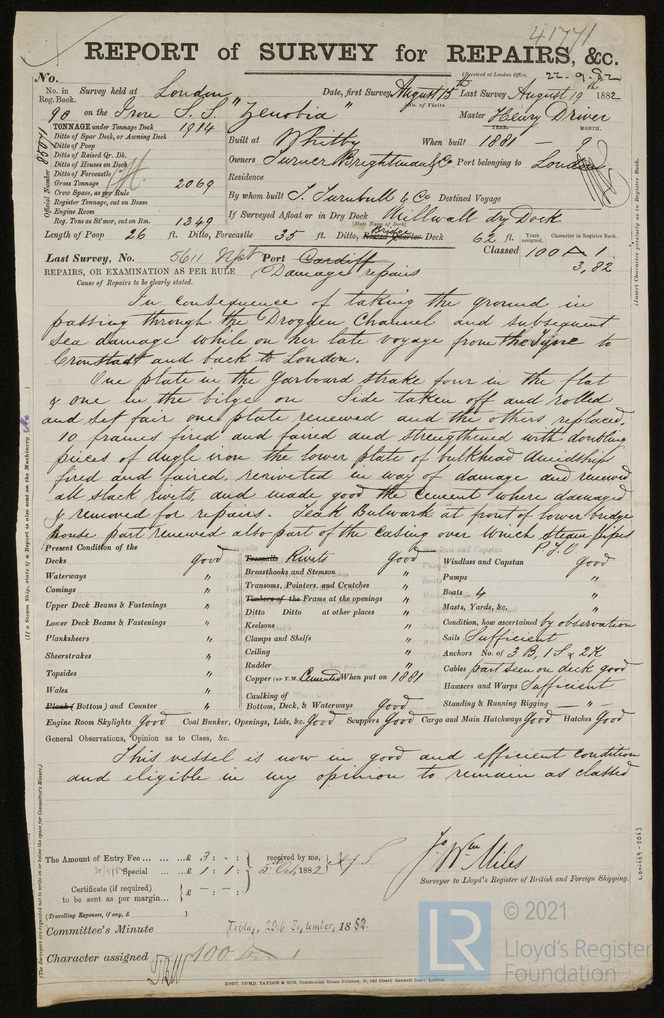 41771
REPORT of SURVEY for REPAIRS, &c.
(Received at London Office, 22-9-82
No.
No. in Survey held at London Date, first Survey August 15th Last Survey August 19th 1882
Reg. Book. (No. of Visits
90 on the Iron S.S. "Zenobia" Master Henry Driver
TONNAGE under Tonnage Deck 1914
Ditto of Spar Deck, or Awning Deck
Ditto of Poop
Ditto of Raised Qr. Dk.
Ditto of Houses on Deck
Ditto of Forecastle
Gross Tonnage 2069
Crew Space, as per Rule
Register Tonnage, cut on Beam
Engine Room
Reg. Tons as St'mer, cut on Bm. 1349
Official Number
YEAR. MONTH.
Built at Whitby When built 1881 - 9
Owners Turner Brightman & Co Port belonging to London
Residence
By whom built T. Turnbull & Co Destined Voyage
If Surveyed Afloat or in Dry Dock Millwall dry Dock
(State Name of Dock.)
Length of Poop 26 ft. Ditto, Forecastle 35 ft. Ditto, Bridge Raised Quarter Deck 62 ft. Years assigned. Character in Register Book.
Last Survey, No. 5611 Npt Port Cardiff Classed 100 A 1
3,82
REPAIRS, OR EXAMINATION AS PER RULE Damage repairs
Cause of Repairs to be clearly stated.
In consequence of taking the ground in
passing through the Drogden Channel and subsequent
sea damage while on her late voyage from the Tyne to
Cronstadt and back to London.
One plate in the garboard strake four in the flat
& one in the bilge on Side taken off and rolled
and set fair one plate renewed and the others replaced.
10 frames fired and faired and strengthened with doubling
pieces of angle iron the lower plate of bulkhead amidships
fired and faired, reriveted in way of damage and renewed
all slack rivets and made good the cement where damaged
& removed for repairs. Teak Bulwark at front of lower bridge
house part renewed also part of the casing over which steam pipes
P.T.O
Present Condition of the
Decks Good
Waterways "
Comings "
Upper Deck Beams & Fastenings "
Lower Deck Beams & Fastenings "
Planksheers "
Sheerstrakes "
Topsides "
Wales "
Plank (Bottom) and Counter "
Treenails Rivets Good
Breasthooks and Stemson "
Transoms, Pointers, and Crutches "
Timbers of the Frame at the openings "
Ditto Ditto at other places "
Keelsons "
Clamps and Shelfs "
Ceiling "
Rudder "
Copper (or Y.M.) Cemented When put on 1881
Caulking of
Bottom, Deck, & Waterways Good
Windlass and Capstan Good
Pumps "
Boats 4 "
Masts, Yards, &c. "
Condition, how ascertained by observation
Sails Sufficient
Anchors No. of 3 B, 1 S & 2 K
Cables part seen on deck good
Hawsers and Warps Sufficient
Standing & Running Rigging — " —
Engine Room Skylights Good Coal Bunker, Openings, Lids, &c. Good Scuppers Good Cargo and Main Hatchways Good Hatches Good
General Observations, Opinion as to Class, &c.
This vessel is now in good and efficient condition
and eligible in my opinion to remain as classed
The Amount of Entry Fee ... £ 3 : - : received by me,
Special ... £ 1 : 1 : 5 Oct 1882
Certificate (if required)
to be sent as per margin... £ - : - :
(Travelling Expenses, if any, £ )
Jas Wm Miles
Surveyor to Lloyd's Register of British and Foreign Shipping.
Committee's Minute Friday, 29th September, 1882.
Character assigned 100 A 1
ROBT. EDMD. TAYLOR & SON, Commercial Steam Printers, 19, Old Street, Goswell Road, London.
(Insert Character precisely as in Register Book.
(If a Steam ship, state if a Report is also sent on the Machinery. No
(The Surveyors are requested not to write on or below the space for Committee's Minute.)
LON469-0063
LR
© 2021
Lloyd's Register
Foundation